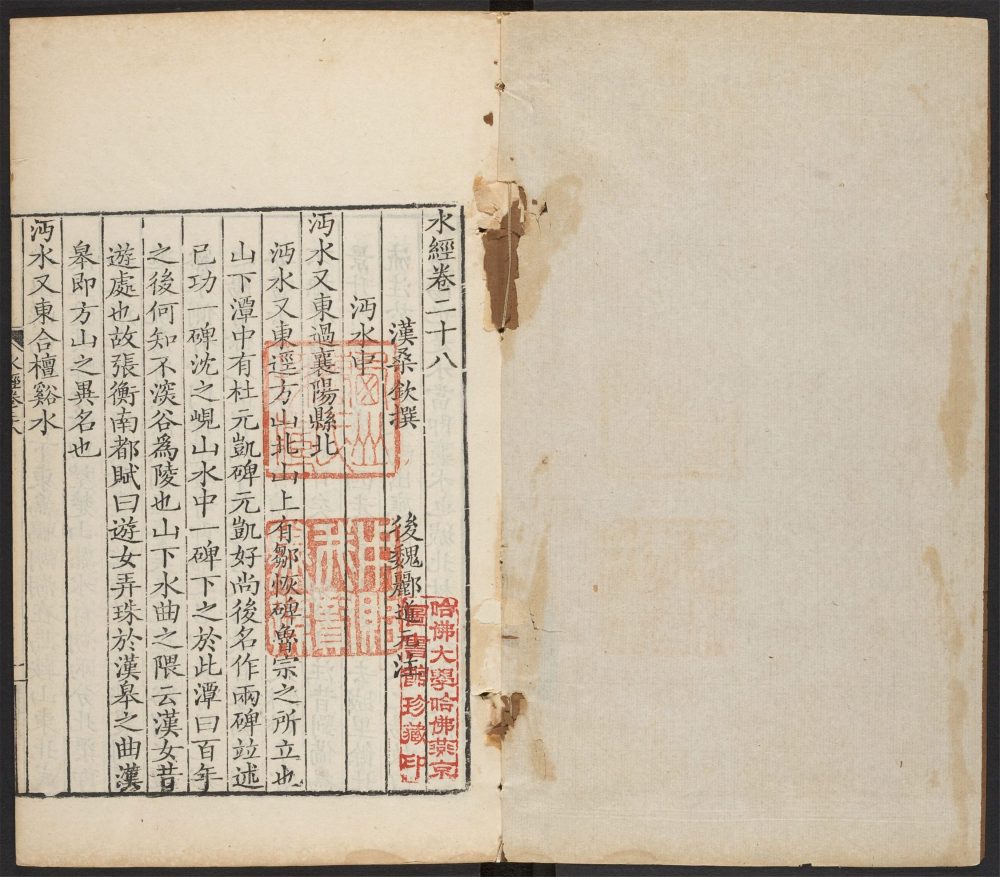 水經卷二十八
漢桑欽撰 後魏酈道元注
沔水中
沔水又東過襄陽縣北
沔水又東逕方山北山上有鄒恢碑魯宗之所立也
山下潭中有杜元凱碑元凱好尚後名作兩碑竝述
已功一碑沈之峴山水中一碑下之於此潭曰百年
之後何知不深谷爲陵也山下水曲之隈云漢女昔
遊處也故張衡南都賦曰遊女弄珠於漢皋之曲漢
皋即方山之異名也
沔水又東合檀谿水
水經卷二十八
一
哈佛大學哈佛燕京
圖書館珍藏印